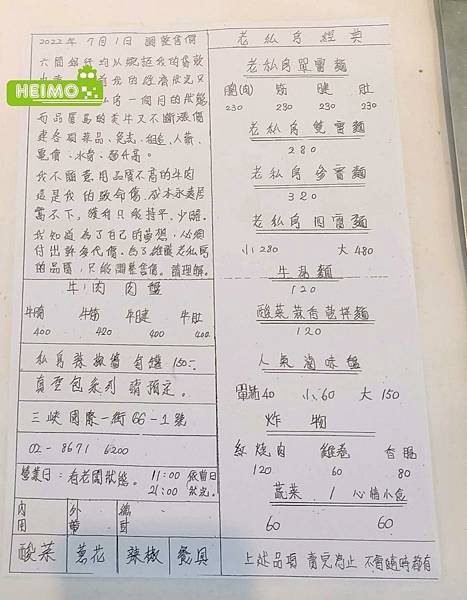 2022年 7月1日 調整售價
六間銀行均以婉拒我的貸款
我的經濟狀況只
一個月的狀態
HEIMO
而品質高的美牛又不斷漲價
連各項菜品、瓦斯、租金、人薪、
電費、水費、都升高。
我不願意用品質不高的牛肉
這是我的致命傷,成本永遠居
高不下,獲利只能持平、少賺。
我知道為了自己的夢想,必須
付出許多代價。為了維護老私房
的品質,只能調整售價。請理解。
牛肉肉盤
牛腩 牛筋 牛腱 牛肚
400 420 400 400
私房辣椒醬 自選 150
真空包系列 請預定。
三峽國際一街66-1號
02-8671 6200
營業日:看老闆狀態。 11:00 依當日
21:00 狀況。
內用 外帶 總計
酸菜 蔥花 辣椒 餐具
老私房經典
老私房單寶麵
腩(肉) 筋 腱 肚
230 230 230 230
老私房雙寶麵
280
老私房參寶麵
320
老私房四寶麵
小 280 大 480
牛湯麵
120
酸菜蒜香乾拌麵
120
人氣滷味盤
單點40 小60 大 150
炸物
紅燒肉 雞卷 香腸
120 60 80
蔬菜 / 心情小盒
60 60
上述品項 賣完為止 不會隨時都有